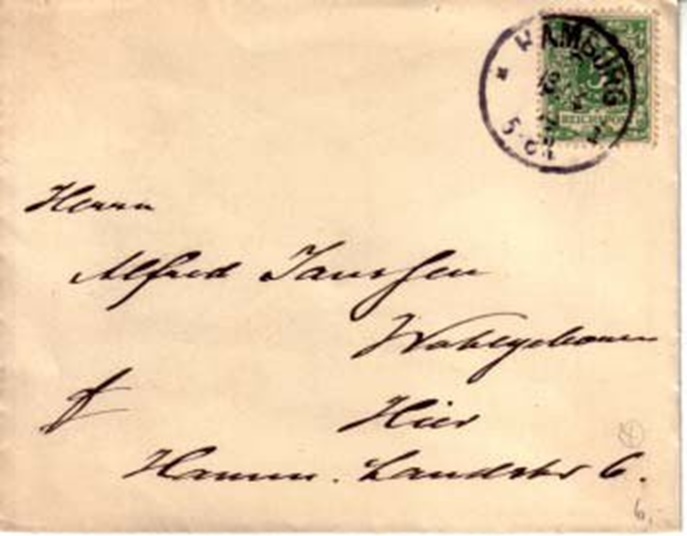 HAMBURG
REICHSPOST
Herrn
Alfred Janssen
Wohlgeboren
Hier
Hamm. Landstr 6.
6,-